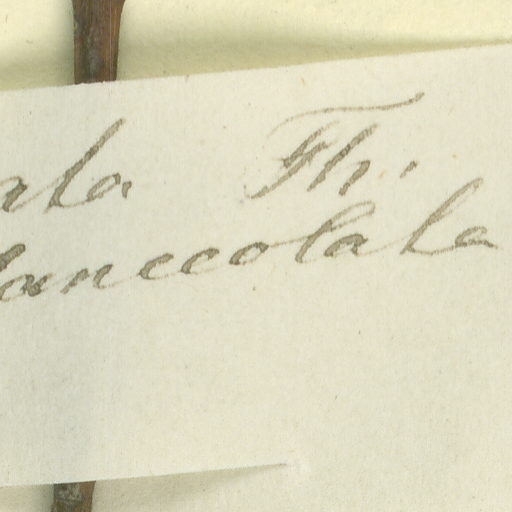 ata Th.
lanceolata